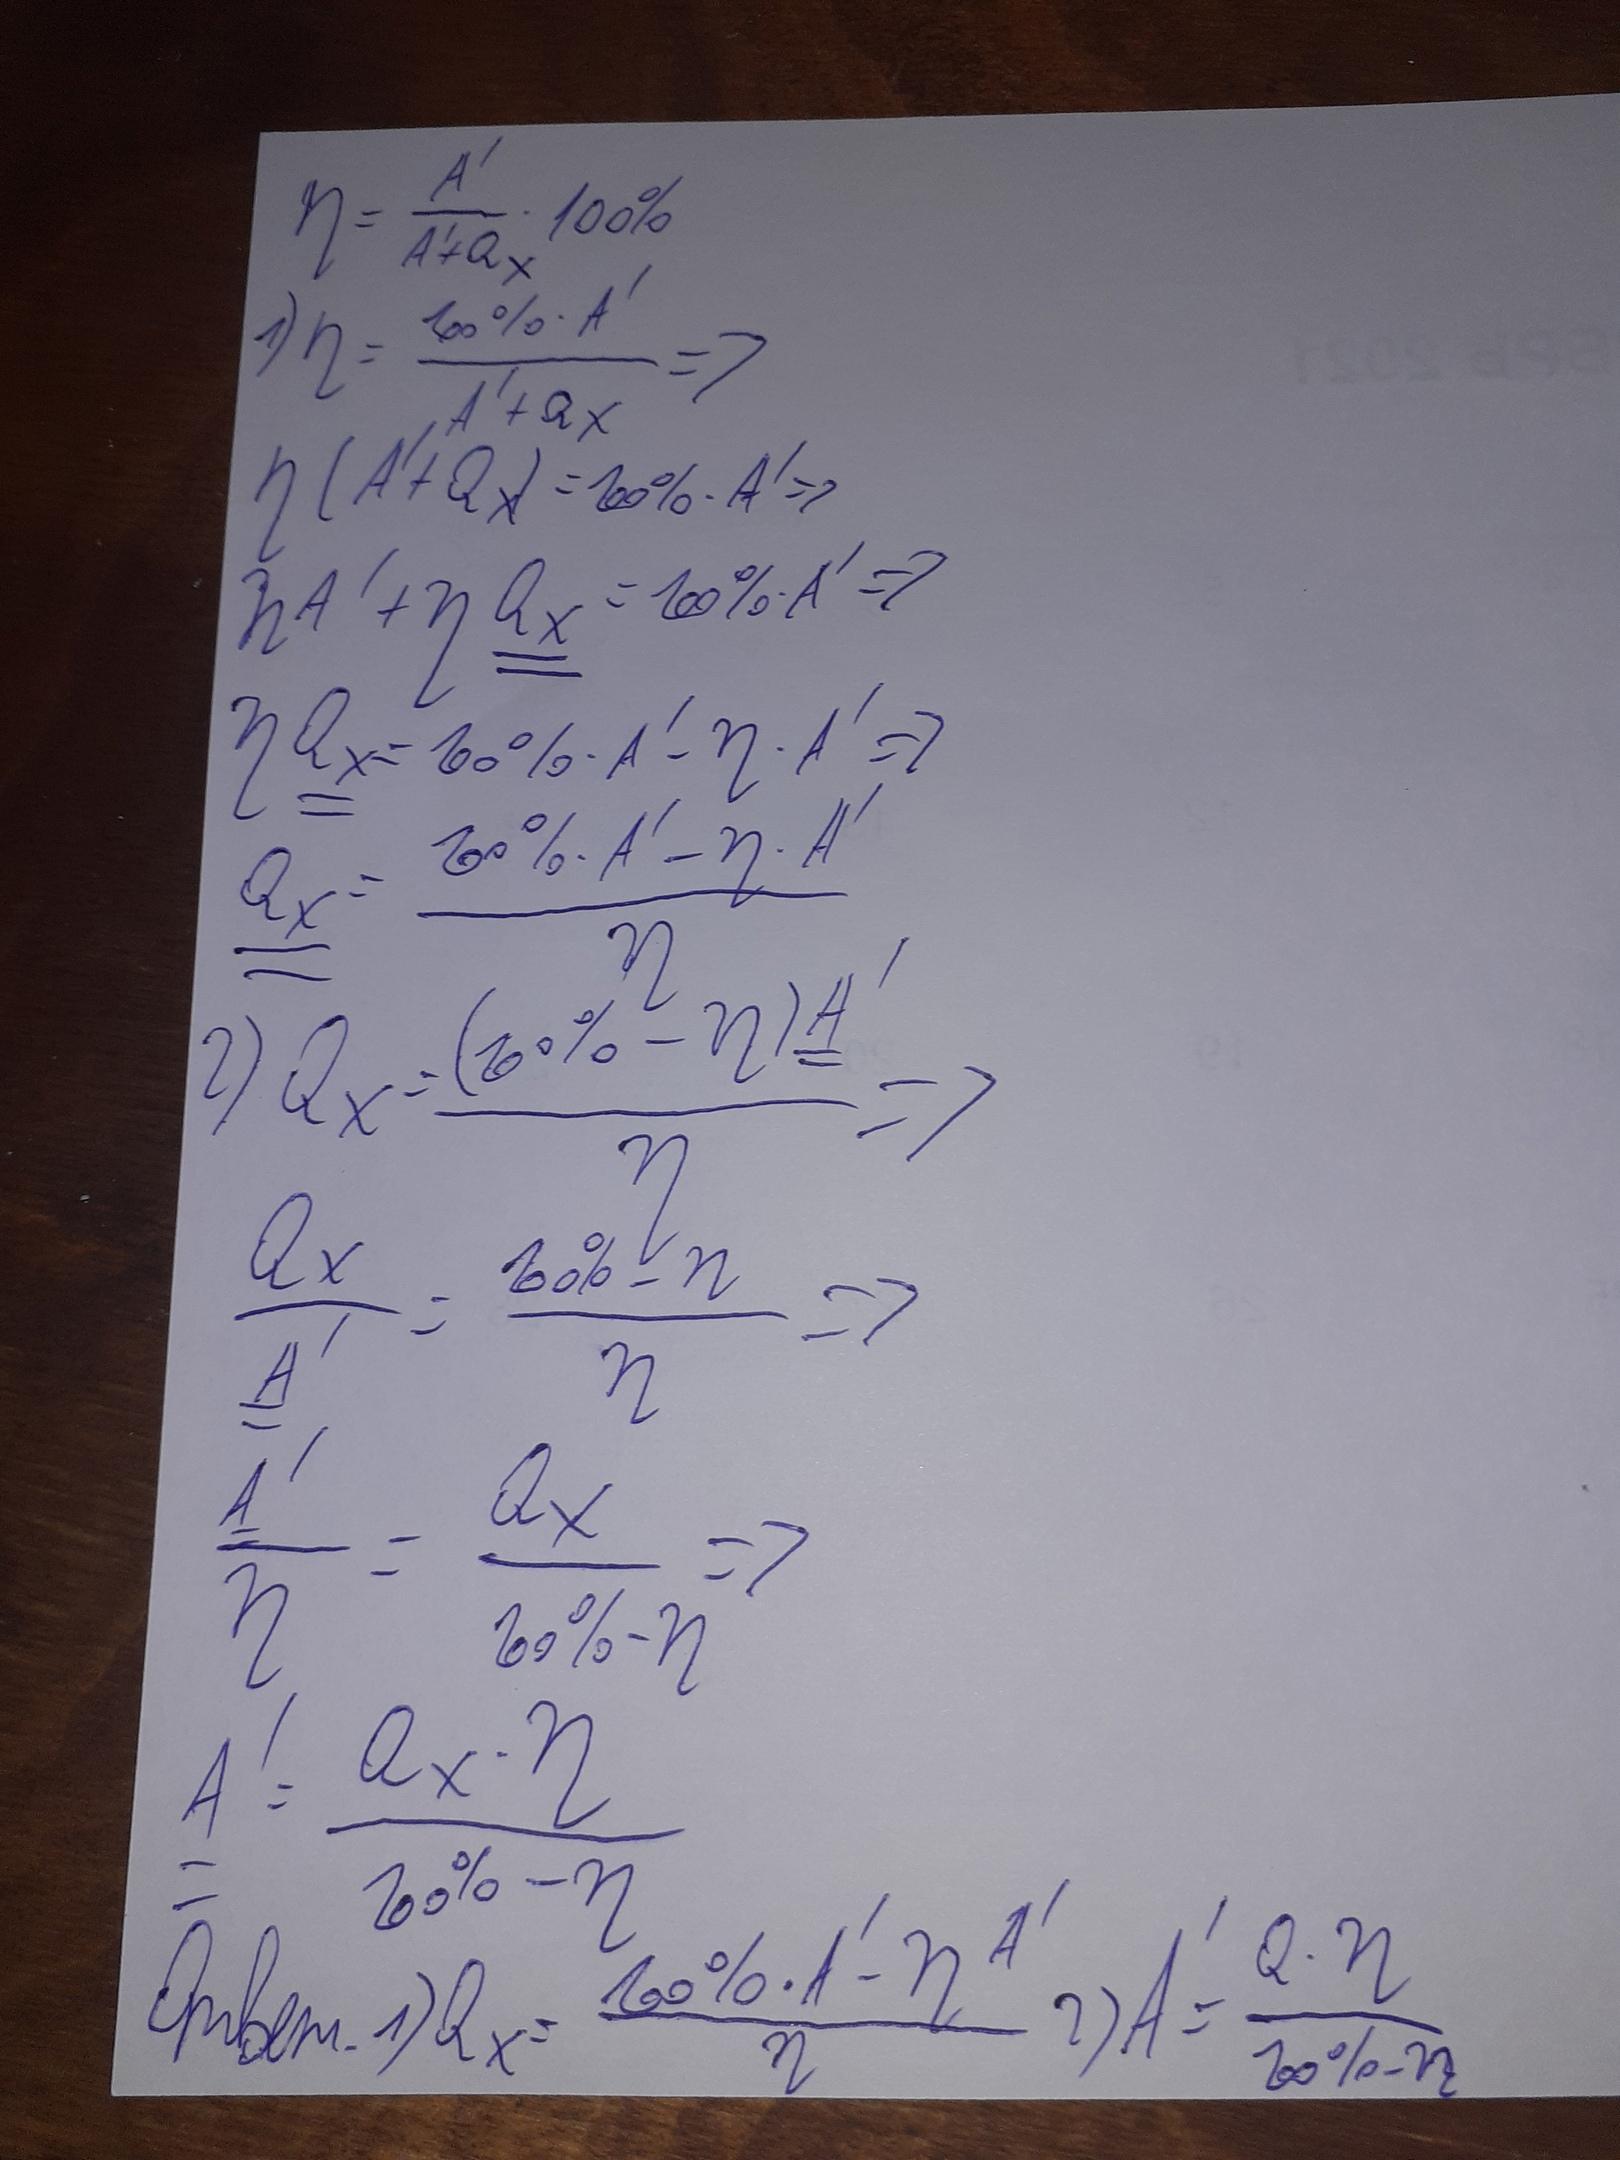 η = A' / (A'+Qx) · 100%
1) η = 100% · A' / (A'+Qx) =>
η(A'+Qx) = 100% · A' =>
ηA' + ηQx = 100% · A' =>
ηQx = 100% · A' - η · A' =>
Qx = (100% · A' - η · A') / η
2) Qx = (100% - η)A' / η =>
Qx / A' = (100% - η) / η =>
A' / η = Qx / (100% - η) =>
A' = Qx · η / (100% - η)
Ответ. 1) Qx = (100% · A' - ηA') / η 2) A' = Q · η / (100% - η)